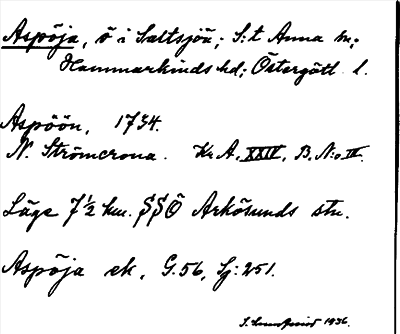 Aspöja, ö i Saltsjön; S:t Anna sn;
Hammarkinds hd; Östergötl. l.
Aspöön, 1734.
N. Strömcrona. Kr A, XXIV, B, N:o III.
Läge 7 1/2 km. SSÖ Arkösunds stn.
Aspöja ek, G. 56, Sj: 251.
1936.